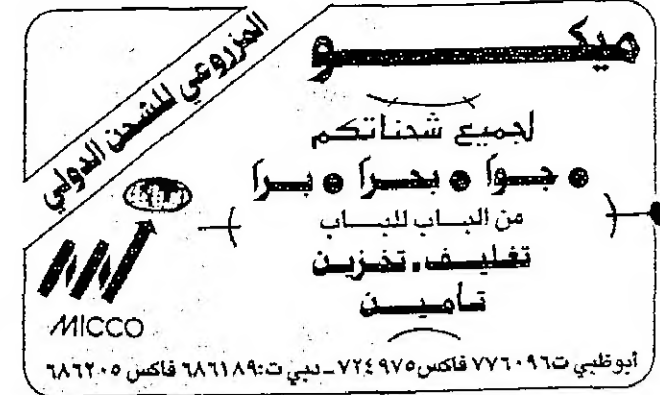 ميكو
المزروعي للشحن الدولي
لجميع شحناتكم
جوا بحرا برا
من الباب للباب
تغليف، تخزين
تامين
MICCO
أبوظبي ت٧٧٦٠٩٦ فاكس٧٢٤٩٧٥ ـ دبي ت:٦٨٦١٨٩ فاكس ٦٨٦٢٠٥